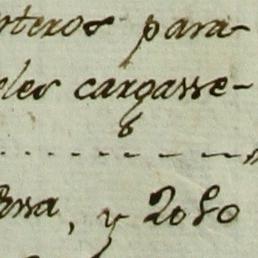 nteros para
eles cargasse-
8
ssa, y 2080